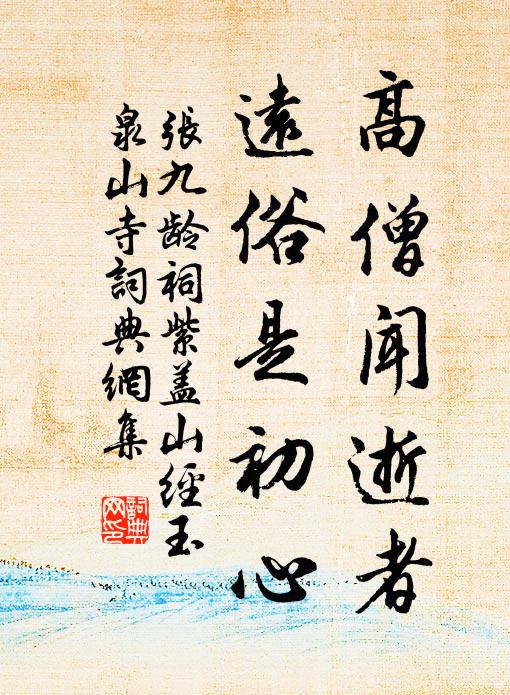 高僧闻逝者
遠俗是初心
張九龄祠紫盖山經玉
泉山寺詞典網集
詞典
网印